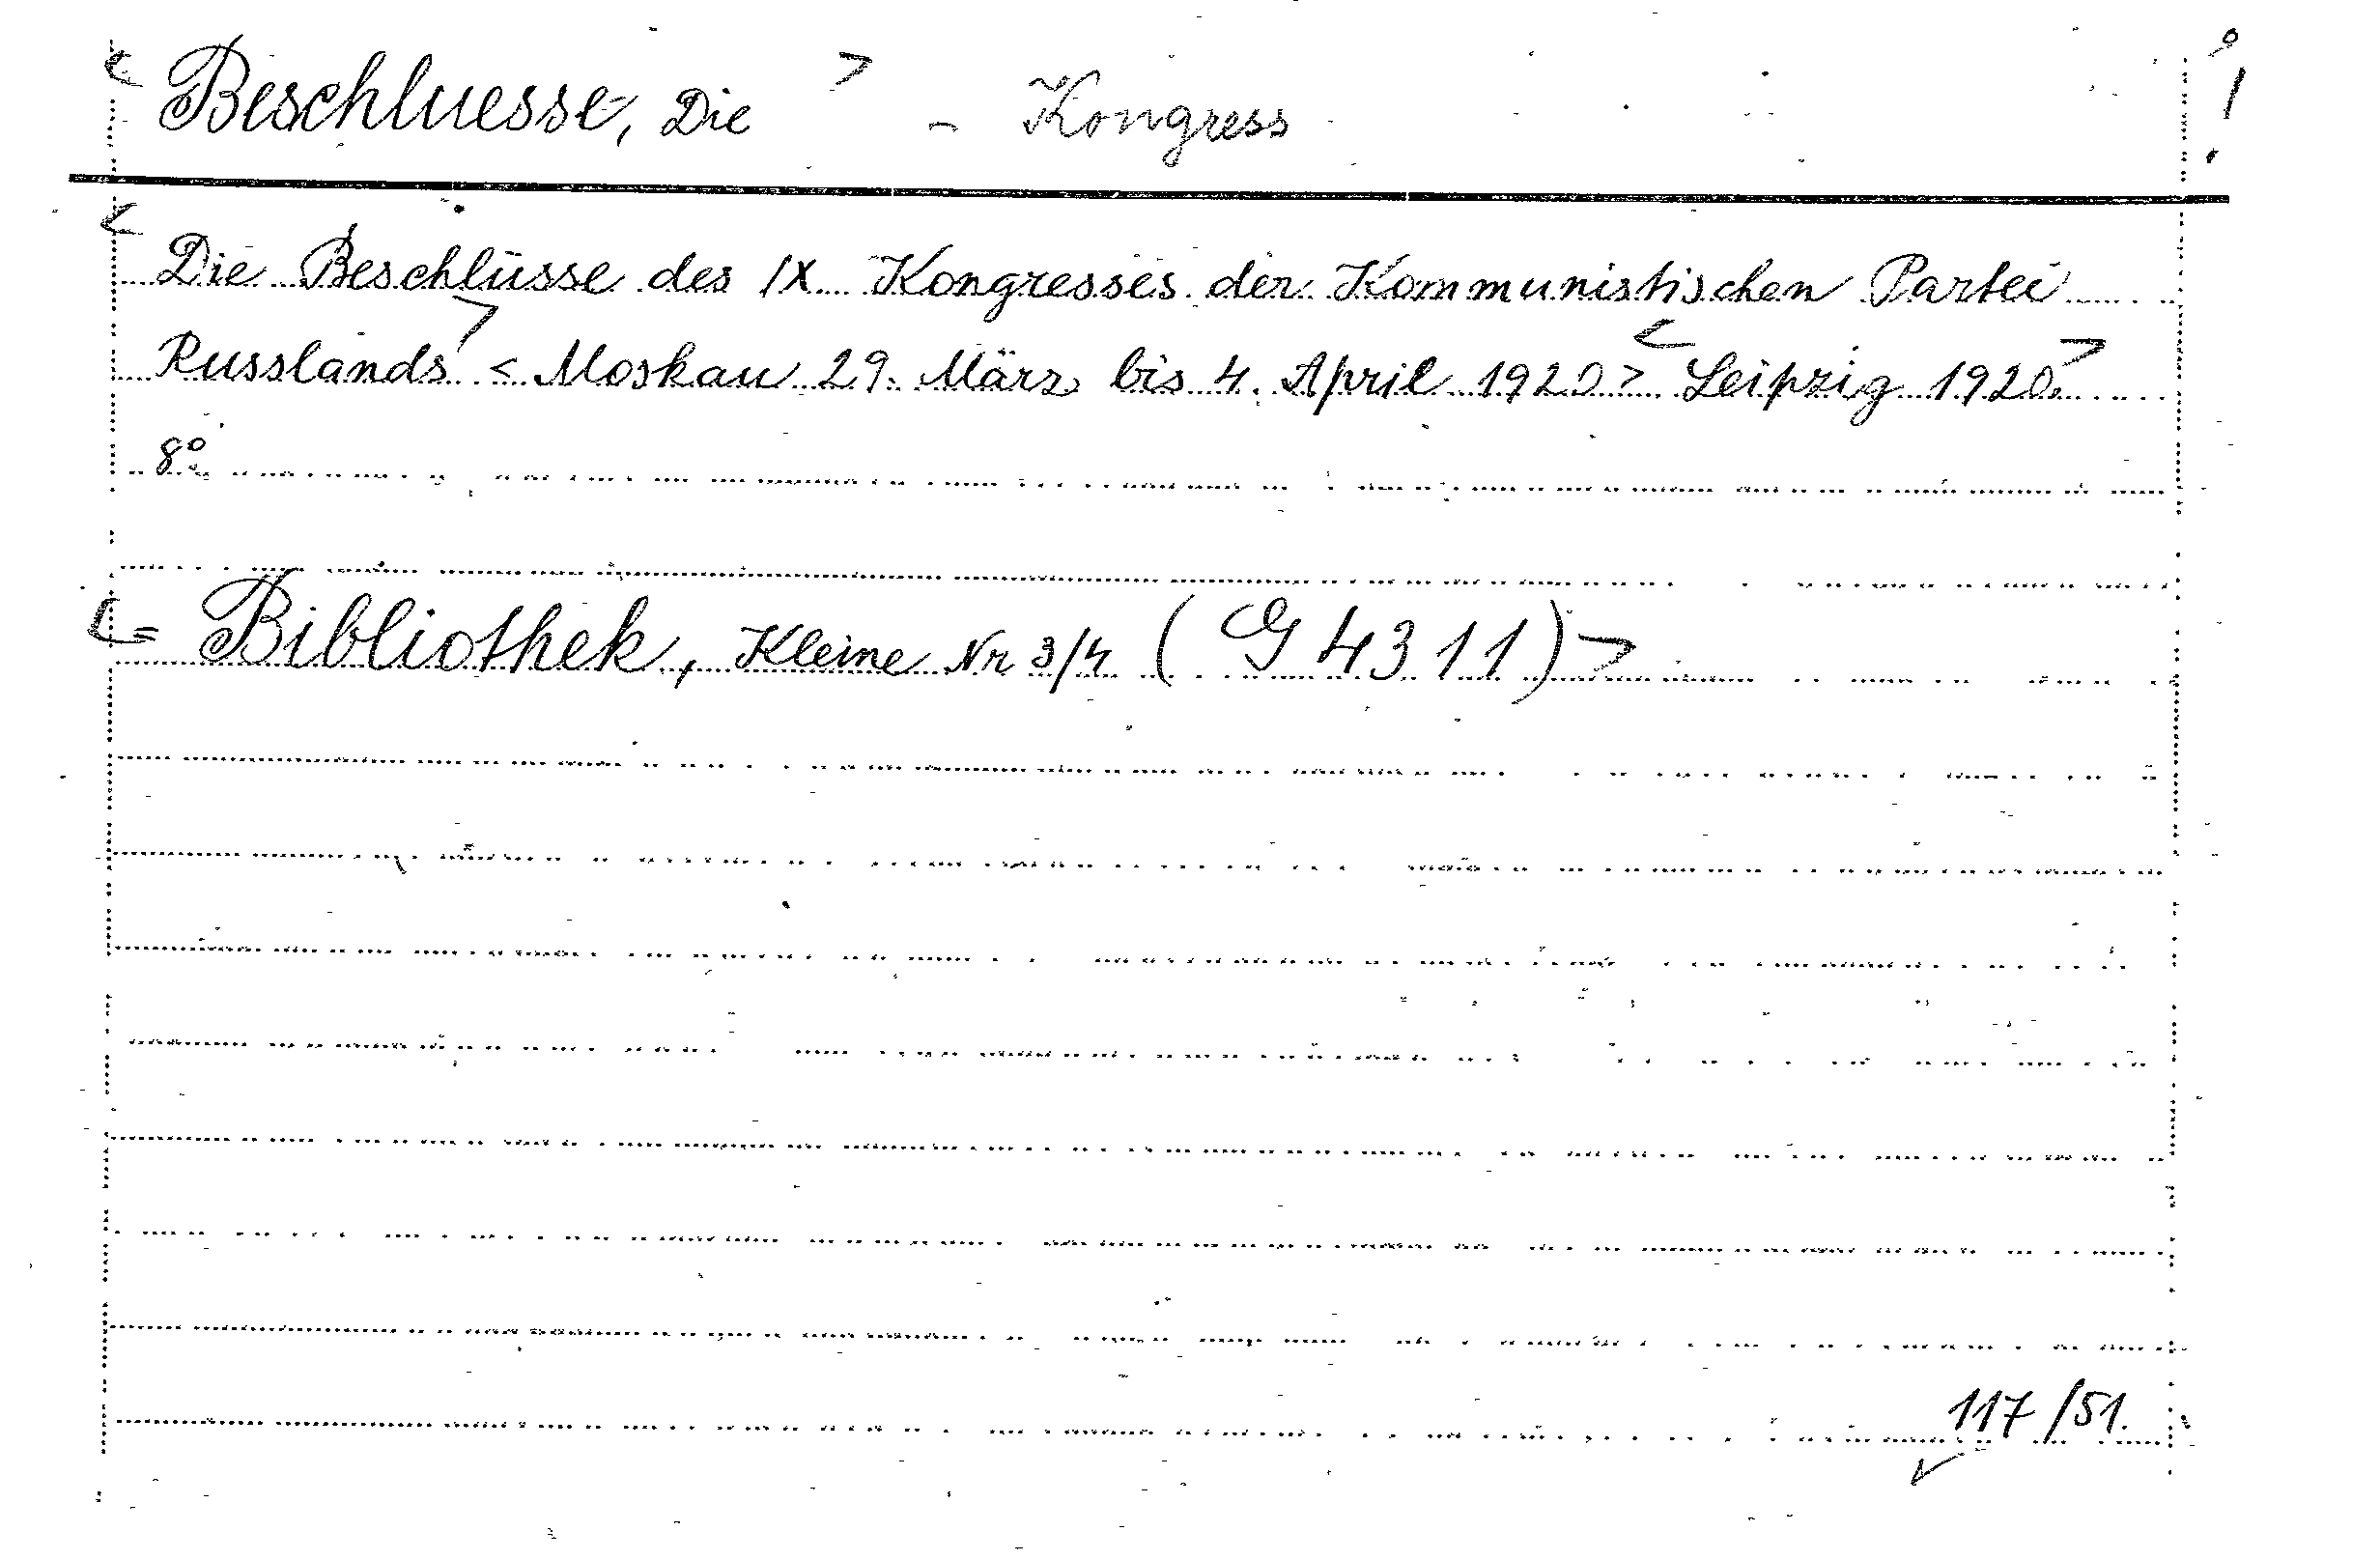 < Beschluesse, Die > - Kongress
< Die Beschlüsse des IX Kongresses der Kommunistischen Partei
Russlands > < Moskau 29. März bis 4. April 1920 > < Leipzig 1920. >
8°
< = Bibliothek, Kleine Nr 3/4 (G 4311) >
117/51.